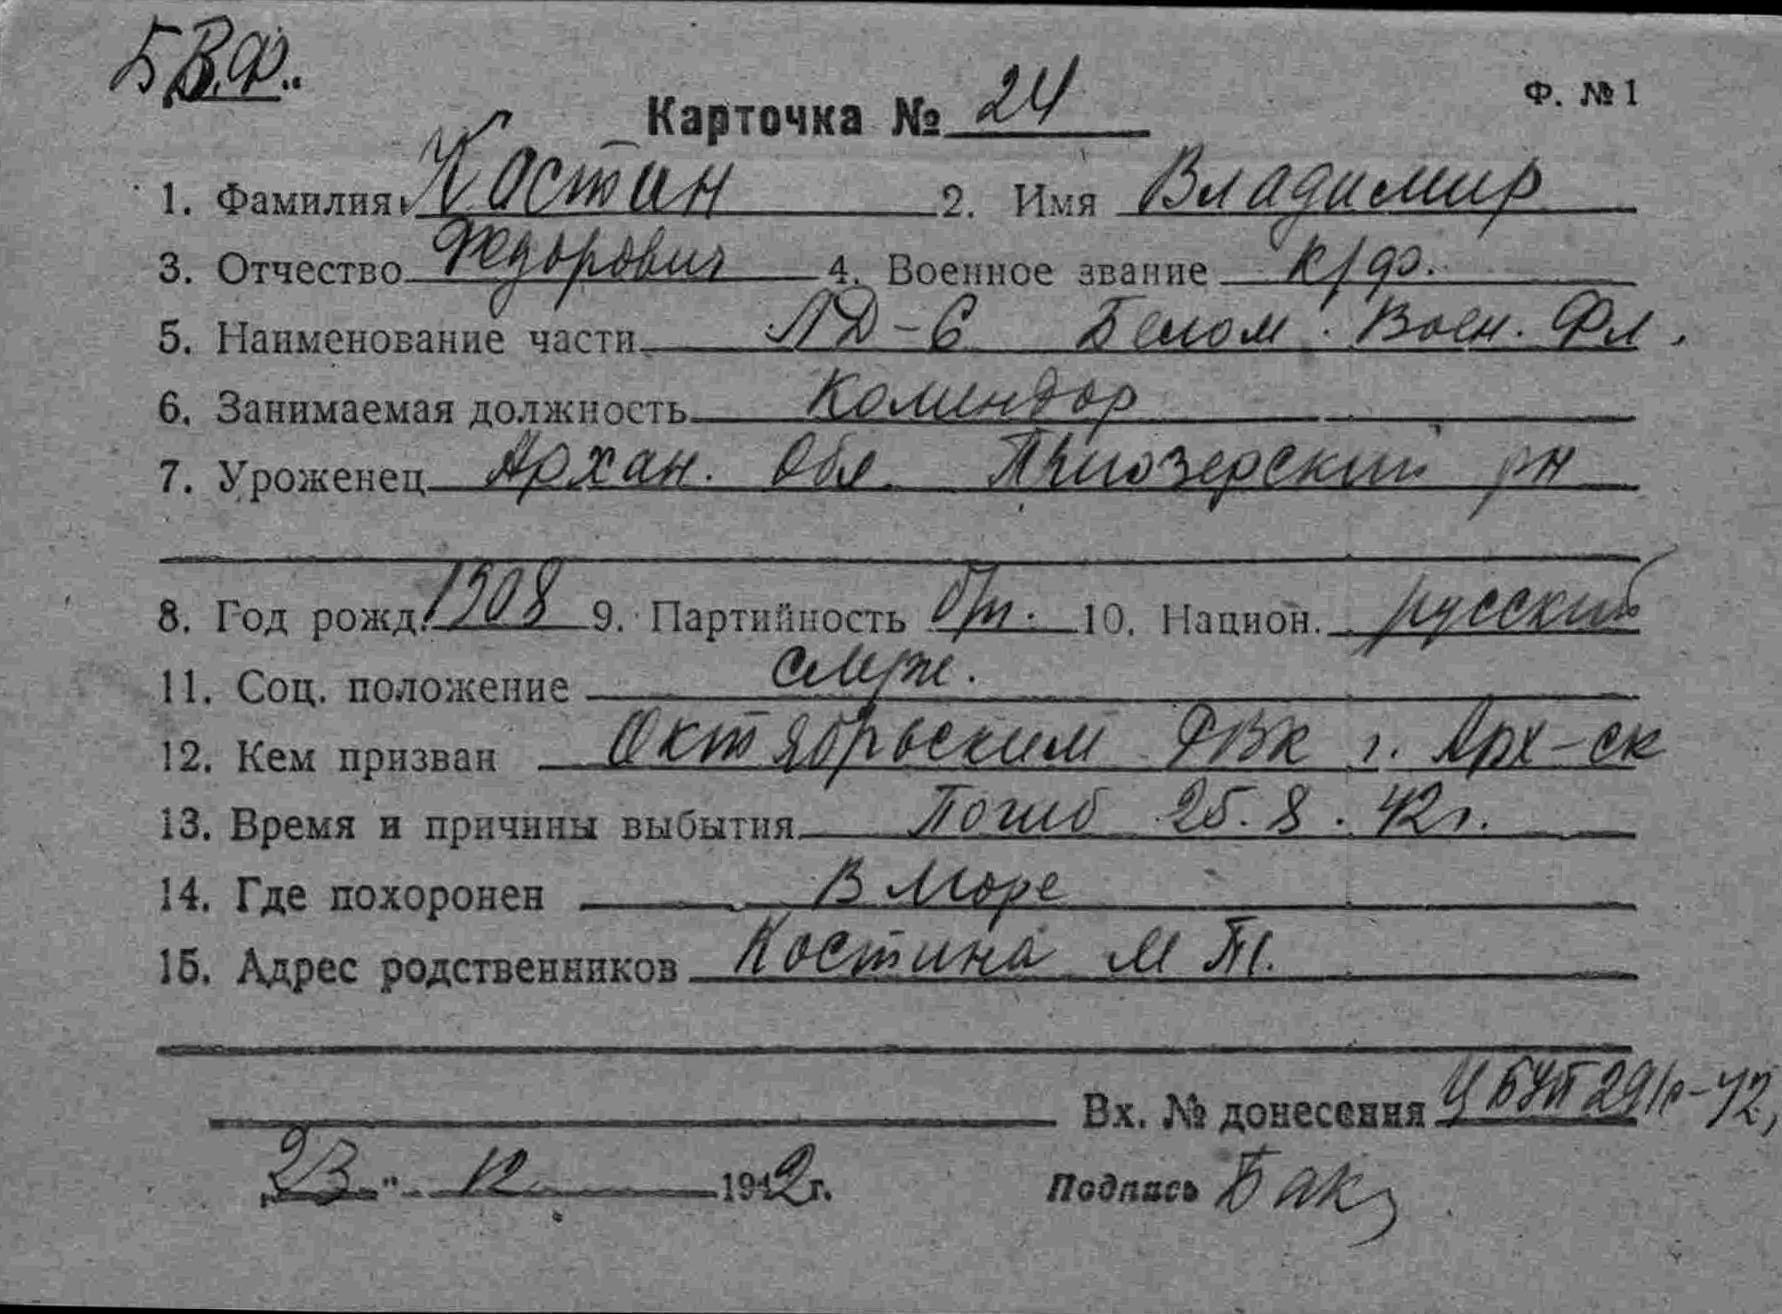 Б В.Ф.
Ф. № 1
Карточка № 24
1. Фамилия Костин 2. Имя Владимир
3. Отчество Федорович 4. Военное звание к/ф.
5. Наименование части ЛД-6 Белом. Воен. Фл.
6. Занимаемая должность Комендор
7. Уроженец Архан. Обл. рн
8. Год рожд. 1908 9. Партийность б/п. 10. Национ. русский
11. Соц. положение служ.
12. Кем призван Октябрьским РВК г. Арх-ск
13. Время и причины выбытия Погиб 25.8.42г.
14. Где похоронен В море
15. Адрес родственников Костина М
Вх. № донесения
„23" 12 1942г. Подпись Бак